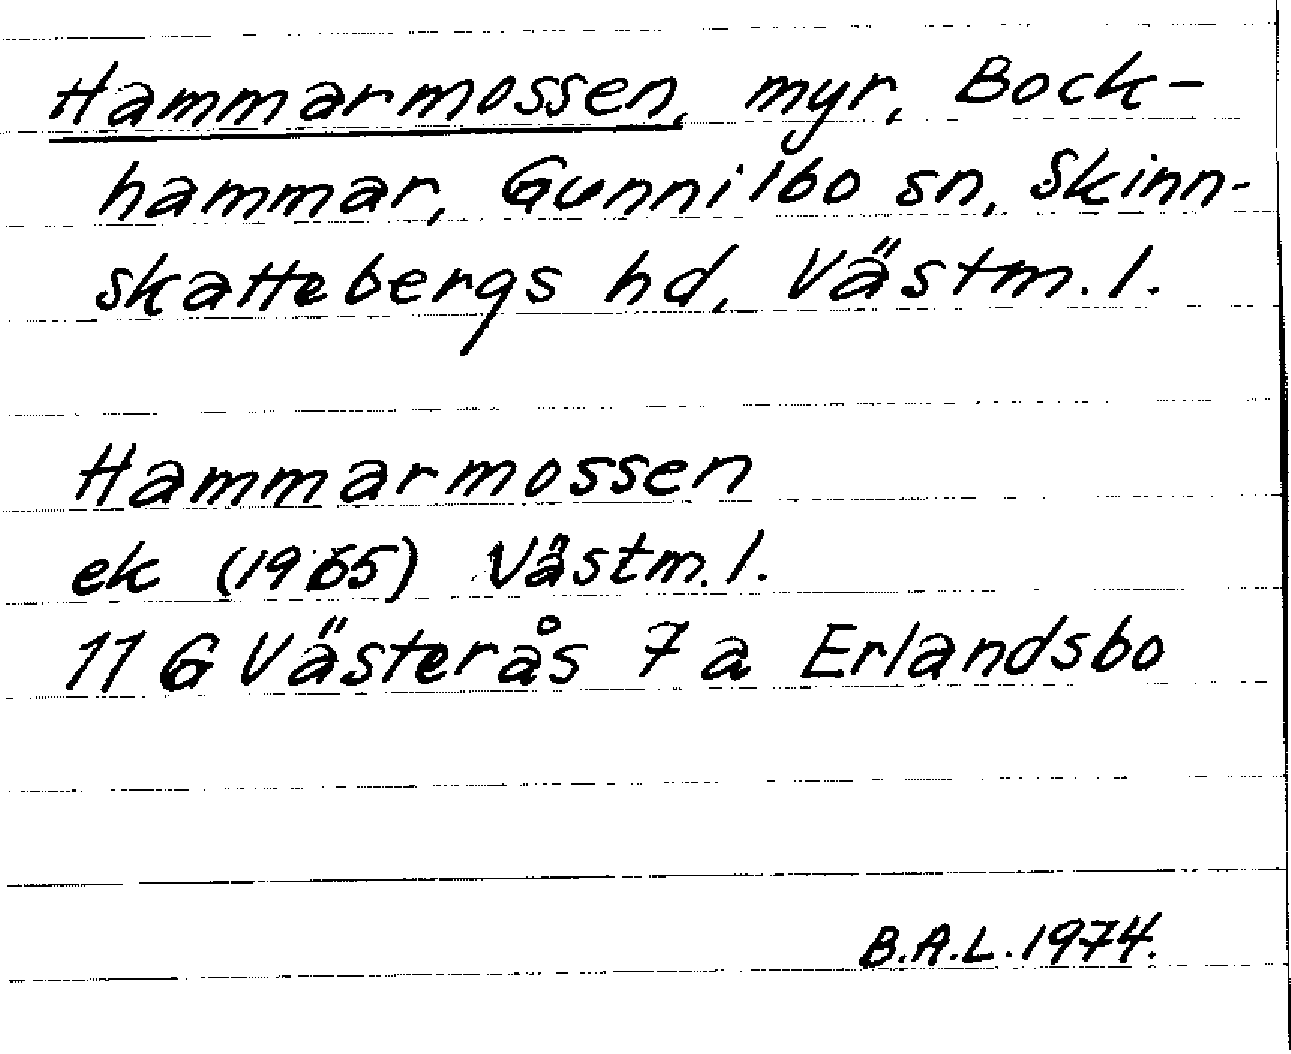 Hammarmossen, myr, Bock-
hammar, Gunnilbo sn, Skinn-
skattebergs hd, Västm. l.
Hammarmossen
ek (1965) Västm. l.
11 G Västerås 7 a Erlandsbo
B.A.L. 1974.